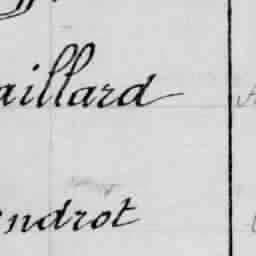 aillard
ndrot